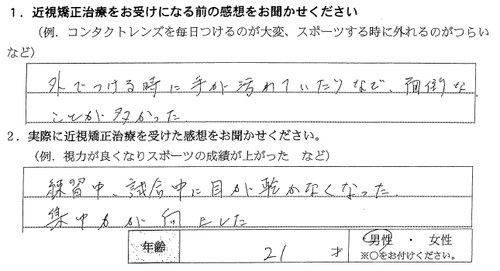 1．近視矯正治療をお受けになる前の感想をお聞かせください
(例．コンタクトレンズを毎日つけるのが大変、スポーツする時に外れるのがつらい
など)
外でつける時に手が汚れていたりなど、面倒な
ことが多かった
2．実際に近視矯正治療を受けた感想をお聞かせください。
(例．視力が良くなりスポーツの成績が上がった　など)
練習中、試合中に目が乾かなくなった、
集中力が向上した
年齢　21　才　男性　・　女性
※○をお付けください。